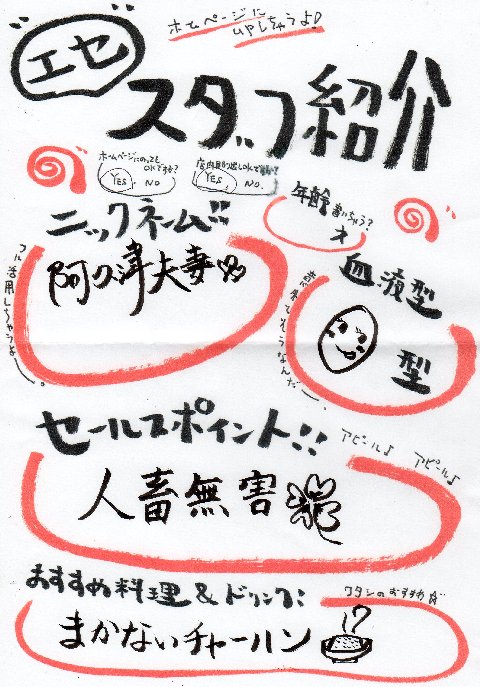 ホームページに
UPしちゃうよ!
エセ
スタッフ紹介
ホームページにのってもOKですか?
YES, NO
YES, NO.
ニックネーム!!
年齢書いちゃう?
才
阿久津夫妻
フル活用しちゃうよ〜。
血液型
型
セールスポイント!!
アピール♪ アピール♪
人畜無害
おすすめ料理&ドリンク:
ワタシのおすすめ☆
まかないチャーハン